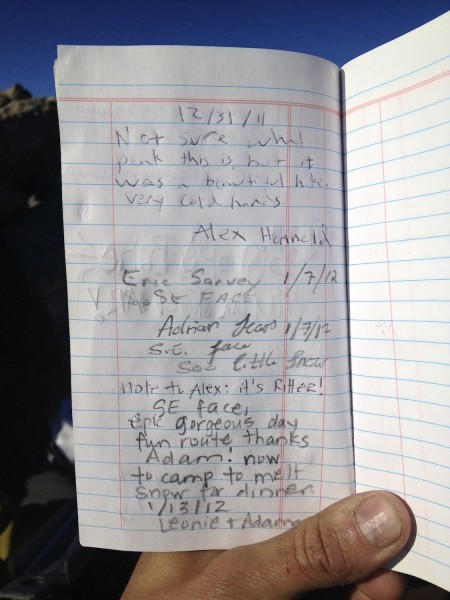 12/31/11
Not sure what
peak this is, but it
was a beautiful hike.
very cold hands.
Alex Honnold
Eric Sarvey 1/7/12
SE FACE
Adrian 1/7/12
S.E. face
Soo little Snow
Note to Alex: it's RitteR!
SE face,
Epic gorgeous day
fun route thanks
Adam! now
to camp to melt
snow for dinner.
1/13/12
Leonie + Adam